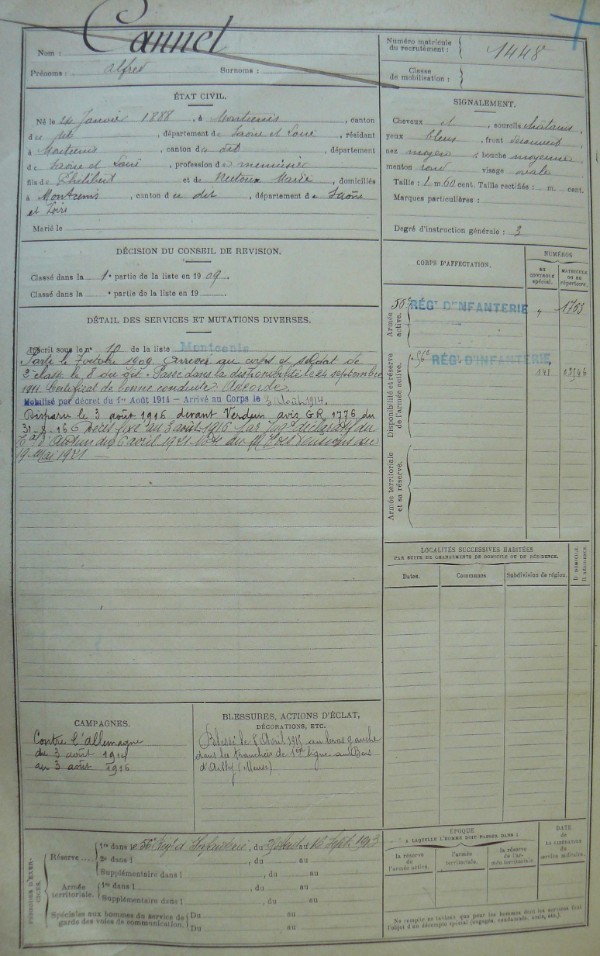 Nom :
Prénoms : Alfred Surnoms :
Numéro matricule du recrutement : 1448
Classe de mobilisation :
ÉTAT CIVIL.
Né le 24 Janvier 1888, à Montcenis, canton
du dit, département de Saône et Loire, résident
à Montcenis, canton du dit, département
de Saône et Loire, profession de menuisier
fils de Philibert et de Marie, domiciliés
à Montcenis, canton du dit, département de Saône
et Loire
Marié le
SIGNALEMENT.
Cheveux et sourcils châtains
yeux bleus, front découvert
nez moyen, bouche moyenne
menton rond, visage ovale
Taille : 1 m. 60 cent. Taille rectifiée : m. cent.
Marques particulières :
Degré d'instruction générale : 3
DÉCISION DU CONSEIL DE REVISION.
Classé dans la 1e partie de la liste en 1909.
Classé dans la e partie de la liste en 19
CORPS D'AFFECTATION.
NUMÉROS
AU CONTROLE spécial.
MATRICULE OU AU répertoire.
Armée active.
56e RÉG. D'INFANTERIE
Disponibilité et réserve de l'armée active.
RÉG. D'INFANTERIE
Armée territoriale et sa réserve.
DÉTAIL DES SERVICES ET MUTATIONS DIVERSES.
Inscrit sous le n° 10 de la liste Montcenis
Parti le 7 octobre 1909 Arrivé au corps et soldat de
2e classe le 8 du dit. Passé dans la disponibilité le 24 septembre
1911. Certificat de bonne conduite Accordé.
Mobilisé par décret du 1er Août 1914 - Arrivé au Corps le 3 Août 1914.
Disparu le 3 août 1916 devant Verdun avis GR 1776 du
Décès fixé au 3 août 1916 par Jugt déclaratif du
Autun du 6 avril 1921
19 Mai 1921
LOCALITÉS SUCCESSIVES HABITÉES
PAR SUITE DE CHANGEMENTS DE DOMICILE OU DE RÉSIDENCE.
Dates. Communes. Subdivision de région. D. domicile. R. résidence.
CAMPAGNES.
Contre l'Allemagne
du 3 août 1914
au 3 août 1916
BLESSURES, ACTIONS D'ÉCLAT, DÉCORATIONS, ETC.
Blessé le Avril 1915 au bras gauche
dans les tranchées de 1ère ligne au Bois
d'Ailly (Meuse)
PÉRIODES D'EXERCICES.
Réserve
1re dans le 56e Régt d'Infanterie, du au Sept. 1913
2e dans l , du au
Supplémentaire dans l , du au
Armée territoriale.
1re dans l , du au
Supplémentaire dans l , du au
Spéciales aux hommes du service de garde des voies de communication.
Du au
Du au
ÉPOQUE
A LAQUELLE L'HOMME DOIT PASSER DANS :
la réserve de l'armée active.
l'armée territoriale.
la réserve de l'armée territoriale.
DATE DE LA LIBÉRATION du service militaire.
Ne remplir ce tableau que pour les hommes dont les services font l'objet d'un décompte spécial (engagés, condamnés, omis, etc.).